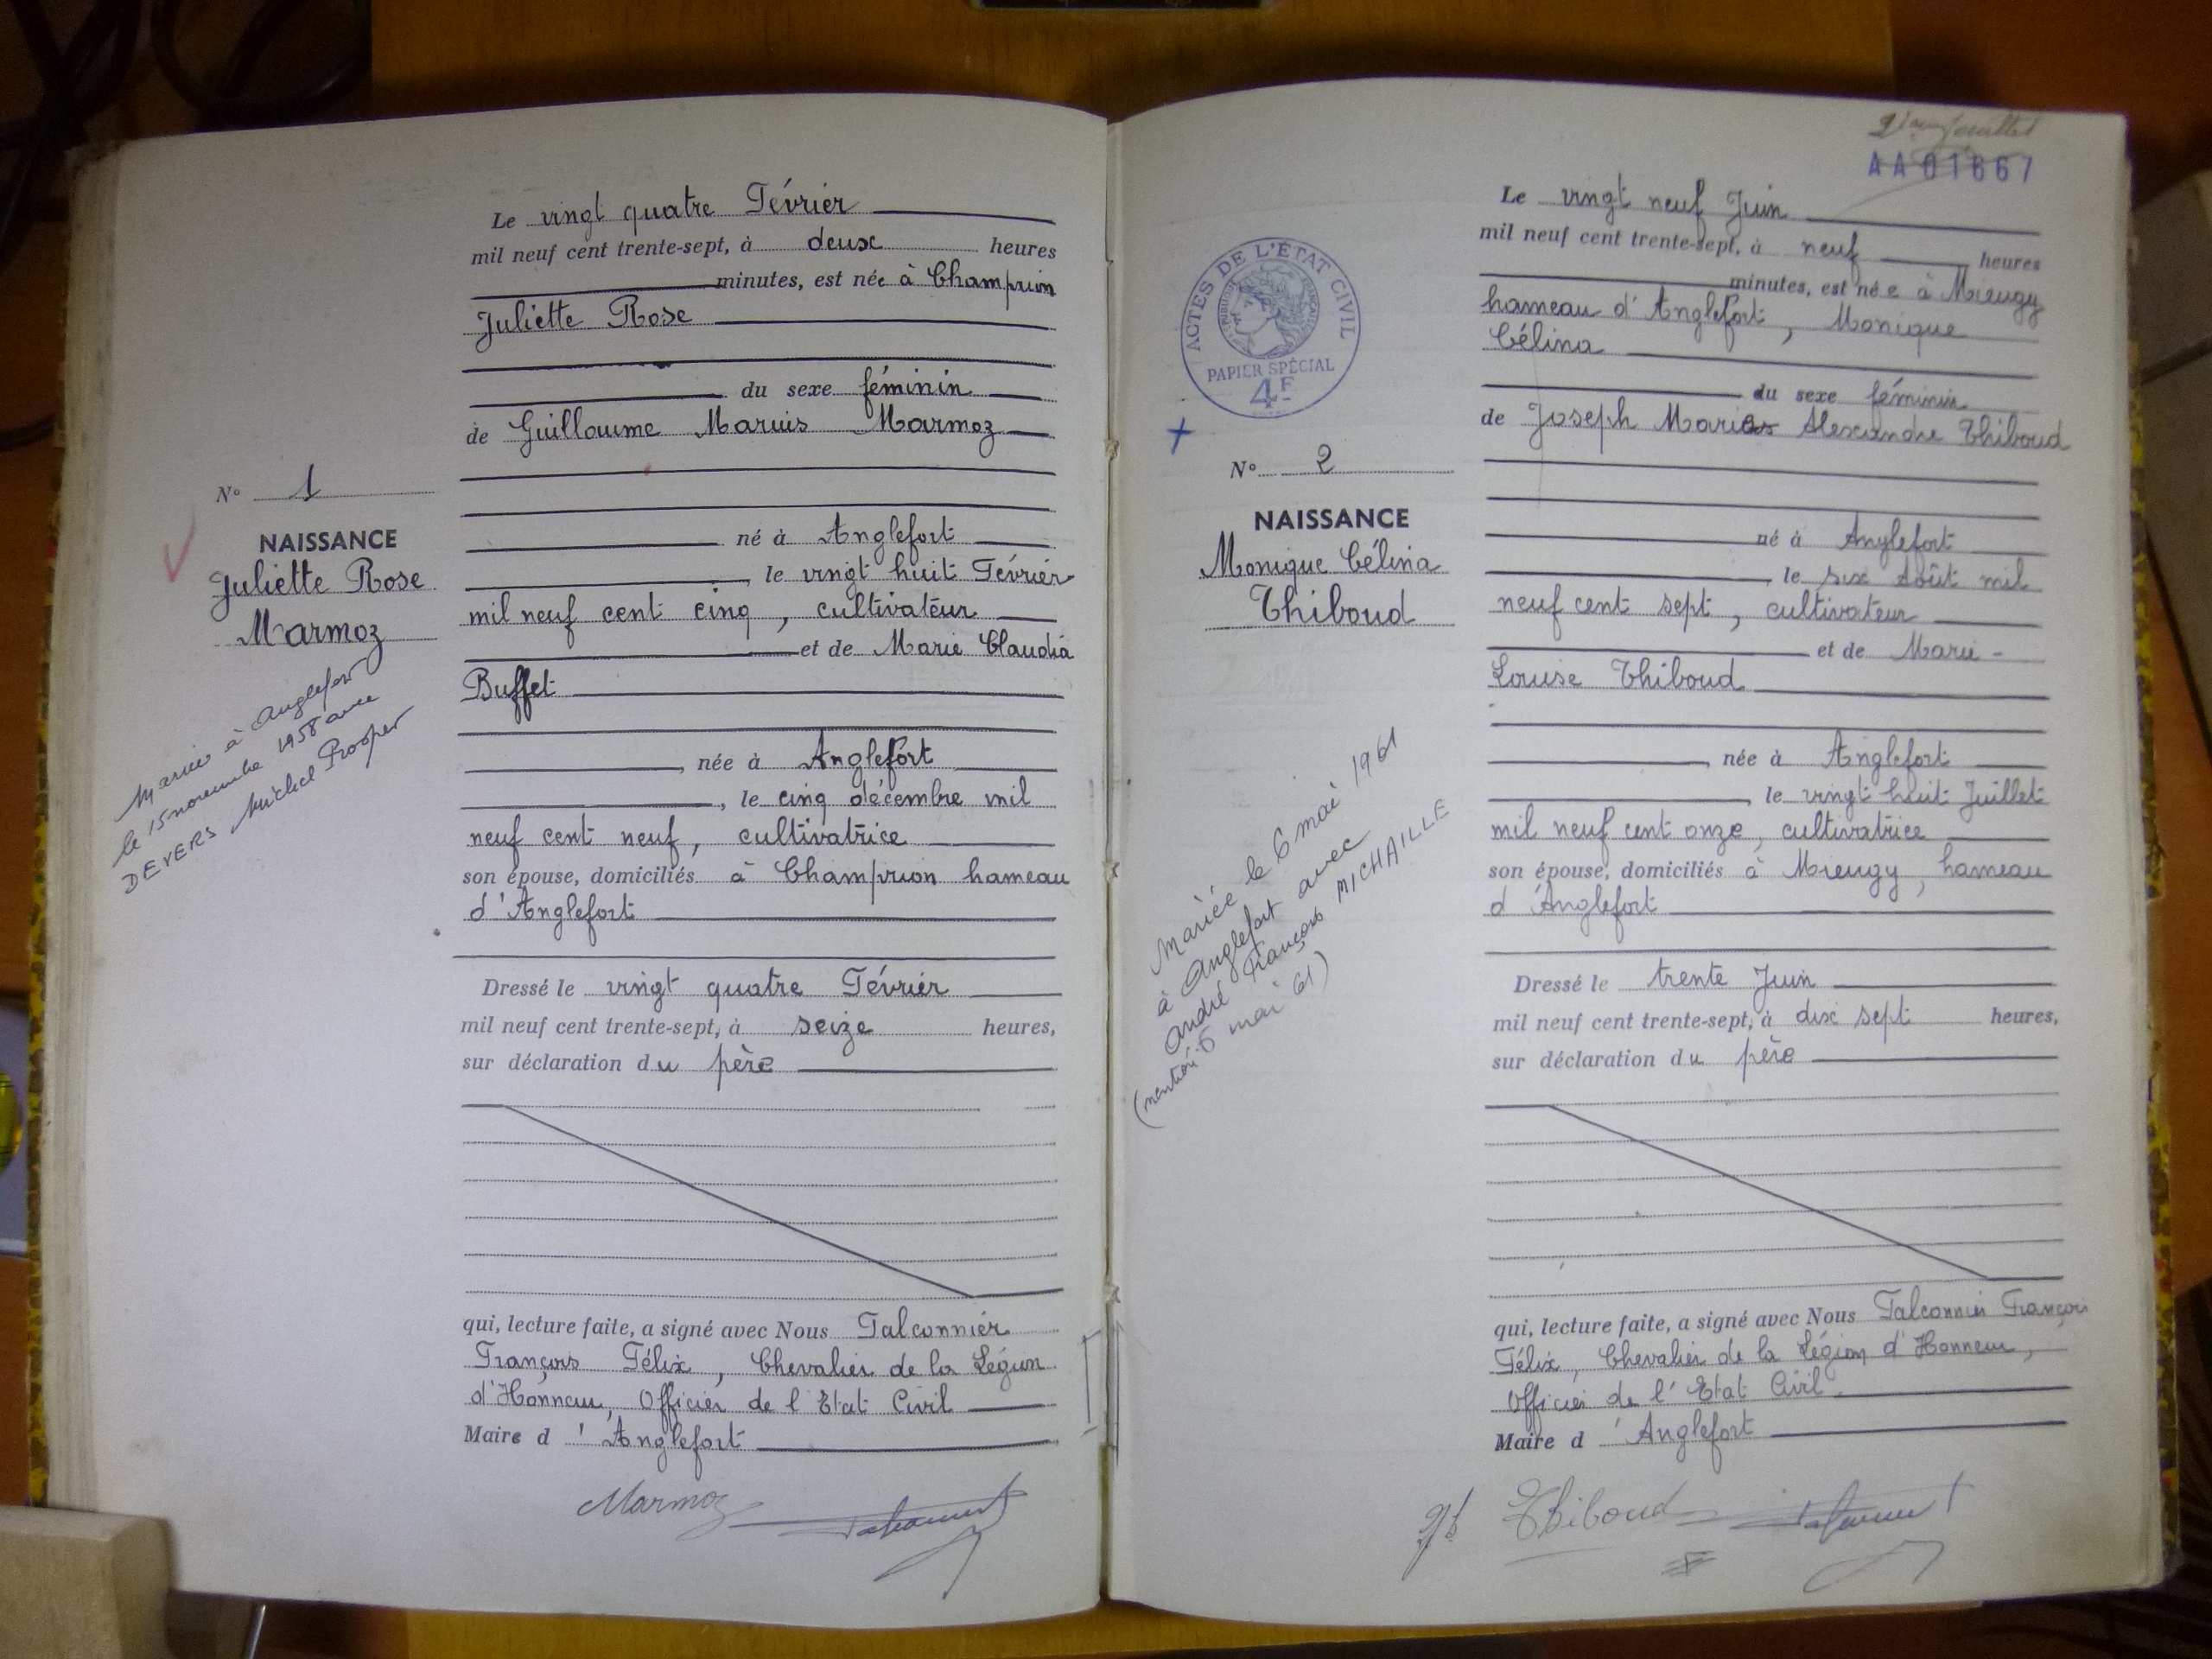 Le vingt quatre Février
mil neuf cent trente-sept, à deux heures
minutes, est née à Champrion
Juliette Rose
du sexe féminin
de Guillaume Marius Marmoz
né à Anglefort
le vingt huit Février
mil neuf cent cinq, cultivateur
et de Marie Claudia
Buffet
née à Anglefort
, le cinq décembre mil
neuf cent neuf, cultivatrice
son épouse, domiciliés à Champrion hameau
d'Anglefort
Dressé le vingt quatre Février
mil neuf cent trente-sept, à seize heures,
sur déclaration du père
qui, lecture faite, a signé avec Nous Falconnier
François Félix, Chevalier de la Légion
d'Honneur, Officier de l'Etat Civil
Maire d'Anglefort
Marmoz
N° 1
NAISSANCE
Juliette Rose
Marmoz
Mariée à Anglefort
le 15 novembre 1958 avec
DEVERS Michel Prosper
AA01667
Le vingt neuf Juin
mil neuf cent trente-sept, à neuf heures
minutes, est née à Mieugy
hameau d'Anglefort, Monique
Célina
du sexe féminin
de Joseph Marius Alexandre Thiboud
né à Anglefort
, le six Août mil
neuf cent sept, cultivateur
et de Marie-
Louise Thiboud
, née à Anglefort
, le vingt huit Juillet
mil neuf cent onze, cultivatrice
son épouse, domiciliés à Mieugy, hameau
d'Anglefort
Dressé le trente Juin
mil neuf cent trente-sept, à dix sept heures,
sur déclaration du père
qui, lecture faite, a signé avec Nous Falconnier François
Félix, Chevalier de la Légion d'Honneur,
Officier de l'Etat Civil.
Maire d'Anglefort
Thiboud
ACTES DE L'ÉTAT CIVIL
PAPIER SPÉCIAL
4F
N° 2
NAISSANCE
Monique Célina
Thiboud
Mariée le 6 mai 1961
à Anglefort avec
André François MICHAILLE
(mention 6 mai 61)